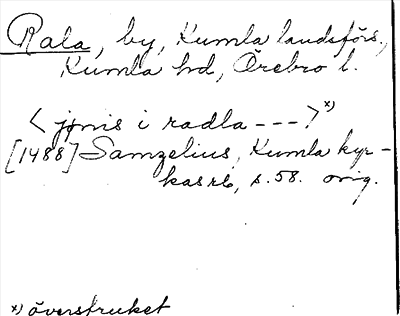 Rala, by, Kumla landsförs.,
Kumla hd, Örebro l.
< jönis i radla --- ? > x)
[1488] Samzelius, Kumla kyr-
kas rb, s. 58. orig.
x) överstruket